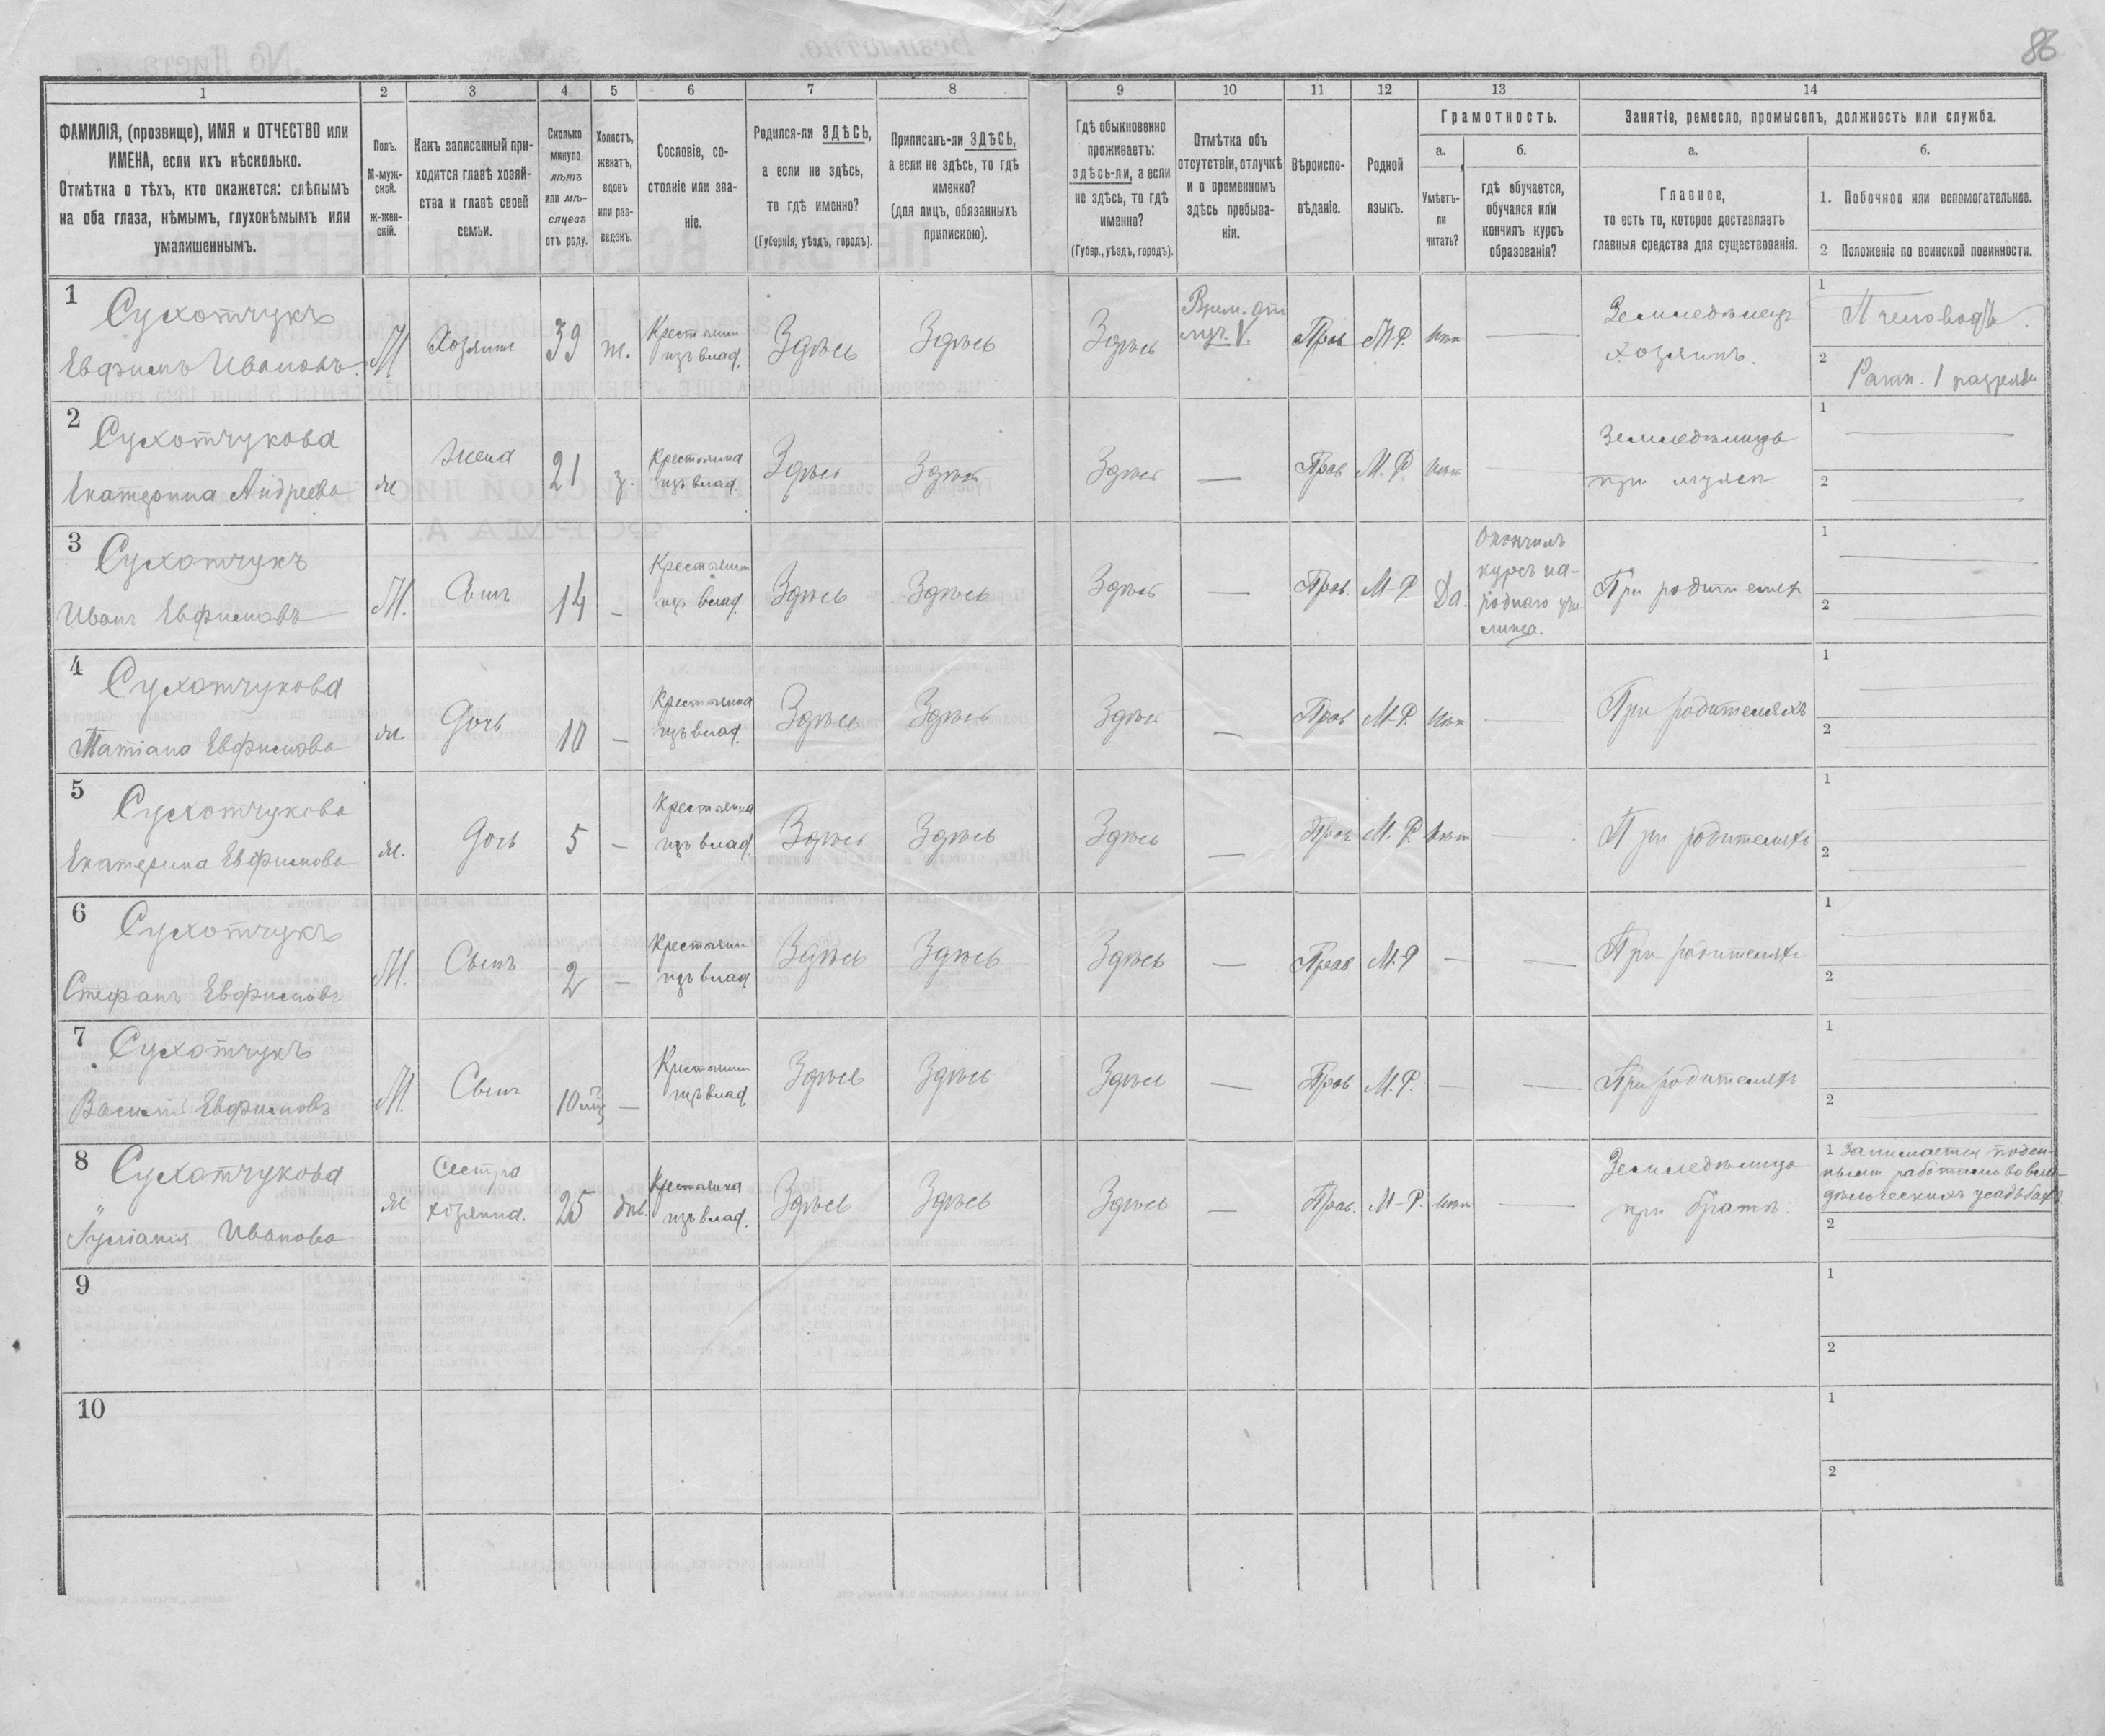 86
1 2 3 4 5 6 7 8 9 10 11 12 13 14
ФАМИЛІЯ, (прозвище), ИМЯ и ОТЧЕСТВО или
ИМЕНА, если ихъ нѣсколько.
Отмѣтка о тѣхъ, кто окажется: слѣпымъ
на оба глаза, нѣмымъ, глухонѣмымъ или
умалишеннымъ.
Полъ.
М-муж-
ской.
ж-жен-
скій.
Какъ записанный при-
ходится главѣ хозяй-
ства и главѣ своей
семьи.
Сколько
минуло
лѣтъ
или мѣ-
сяцевъ
отъ роду.
Холостъ,
женатъ,
вдовъ
или раз-
веденъ.
Сословіе, со-
стояніе или зва-
ніе.
Родился-ли ЗДѢСЬ,
а если не здѣсь,
то гдѣ именно?
(Губернія, уѣздъ, городъ).
Приписанъ-ли ЗДѢСЬ,
а если не здѣсь, то гдѣ
именно?
(для лицъ, обязанныхъ
припискою).
Гдѣ обыкновенно
проживаетъ:
здѣсь-ли, а если
не здѣсь, то гдѣ
именно?
(Губер., уѣздъ, городъ).
Отмѣтка объ
отсутствіи, отлучкѣ
и о временномъ
здѣсь пребыва-
ніи.
Вѣроиспо-
вѣданіе.
Родной
языкъ.
Грамотность.
а.
Умѣетъ-
ли
читать?
б.
гдѣ обучается,
обучался или
кончилъ курсъ
образованія?
Занятіе, ремесло, промыселъ, должность или служба.
а.
Главное,
то есть то, которое доставляетъ
главныя средства для существованія.
б.
1. Побочное или вспомогательное.
2 Положеніе по воинской повинности.
1 Сухотчукъ
Евфимъ Ивановъ М Хозяинъ 39 ж. Крестьянин
изъ влад. Здѣсь Здѣсь Здѣсь Врем. от
луч. V. Прав М.Р. Нѣт —
Земледѣлецъ
хозяинъ.
1 Пчеловодъ
2 Ратн. 1 разряда
2 Сухотчукова
Екатерина Андреева ж Жена 21 з. Крестьянка
изъ влад. Здѣсь Здѣсь Здѣсь — Прав М.Р. Нѣт —
Земледѣлица
при мужѣ
1 —
2 —
3 Сухотчукъ
Иванъ Евфимовъ М. Сынъ 14 — Крестьянин
изъ влад. Здѣсь Здѣсь Здѣсь — Прав. М-Р. Да.
Окончилъ
курсъ на-
роднаго учи-
лища.
При родителях
1 —
2 —
4 Сухотчукова
Татіана Евфимова ж. Дочь 10 — Крестьянка
изъ влад. Здѣсь Здѣсь Здѣсь — Прав М-Р. Нѣт —
При родителяхъ
1 —
2 —
5 Сухотчукова
Екатерина Евфимова ж. Дочь 5 — Крестьянка
изъ влад. Здѣсь Здѣсь Здѣсь — Прав М.Р. Нѣт —
При родителяхъ
1 —
2 —
6 Сухотчукъ
Стефанъ Евфимовъ М. Сынъ 2 — Крестьянин
изъ влад. Здѣсь Здѣсь Здѣсь — Прав М.Р — —
При родителяхъ
1 —
2 —
7 Сухотчукъ
Василій Евфимовъ М. Сынъ 10 — Крестьянин
изъ влад. Здѣсь Здѣсь Здѣсь — Прав М.Р. — —
При родителяхъ
1 —
2 —
8 Сухотчукова
Иванова ж Сестра
хозяина. 25 дѣв. Крестьянка
изъ влад. Здѣсь Здѣсь Здѣсь — Прав. М-Р. Нѣт —
Земледѣлица
при братѣ.
1 Занимается поден-
ными работами во вла-
дѣльческихъ усадьбахъ
2 —
9
1
2
10
1
2